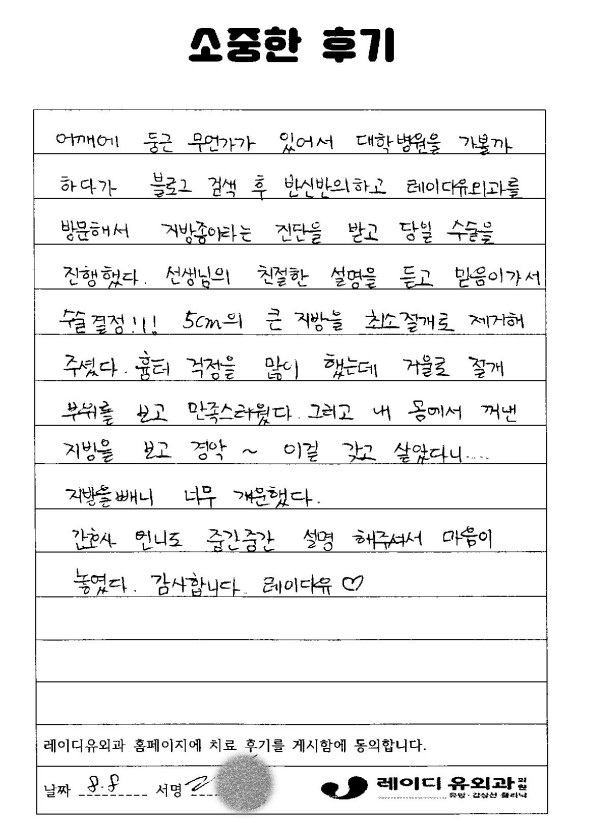 소중한 후기
어깨에 둥근 무언가가 있어서 대학병원을 가볼까
하다가 블로그 검색 후 반신반의하고 레이디유외과를
방문해서 지방종이라는 진단을 받고 당일 수술을
진행했다. 선생님의 친절한 설명을 듣고 믿음이가서
수술결정!!! 5cm의 큰 지방을 최소절개로 제거해
주셨다. 흉터 걱정을 많이 했는데 거울로 절개
부위를 보고 만족스러웠다. 그리고 내 몸에서 꺼낸
지방을 보고 경악 ~ 이걸 갖고 살았다니....
지방을빼니 너무 개운했다.
간호사 언니도 중간중간 설명 해주셔서 마음이
놓였다. 감사합니다. 레이디유 ♡
레이디유외과 홈페이지에 치료 후기를 게시함에 동의합니다.
날짜 8.8 서명 레이디유외과의원
유방·갑상선 클리닉